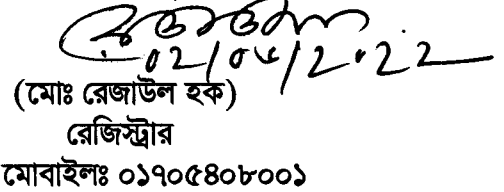 ০২/০৬/২০২২
(মোঃ রেজাউল হক)
রেজিস্ট্রার
মোবাইলঃ ০১৭০৫৪০৮০০১